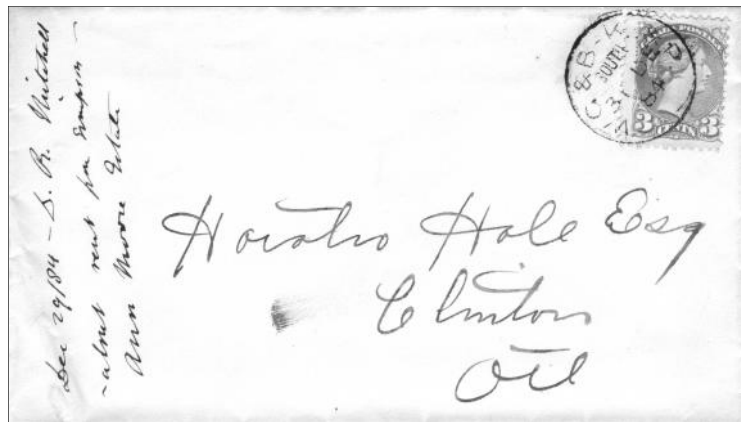 Dec 29/84 – S. R. Mitchell
– about rent for Simpson –
Ann Moore Estate
SOUTH
31 DE
84
3 3
Horatio Hale Esq
Clinton
Ont